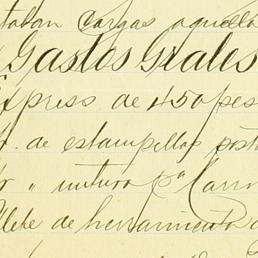 taban cargas aquello
Gastos Grales
Express de 450 pes
de estampillas post
" untura pa Carr
flete de herramienta